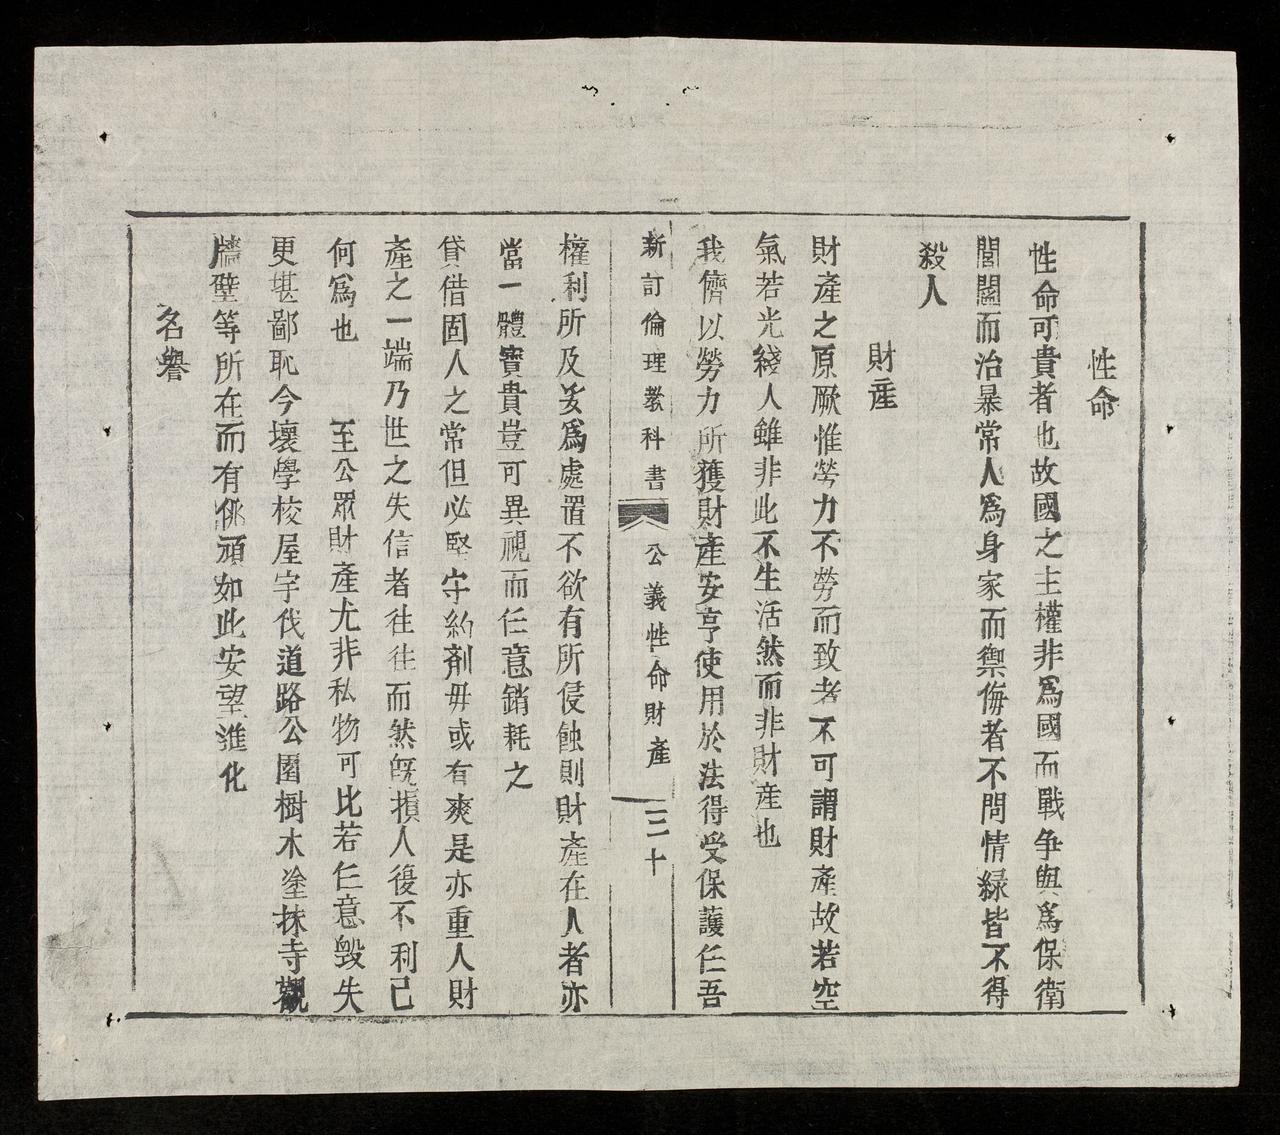 性命
性命可貴者也故國之主權非爲國而戰爭與爲保衛
閭闔而治暴常人爲身家而禦侮者不問情緣皆不得
殺人
財産
財產之原厥惟勞力不勞而致者不可謂財產故若空
氣若光綫人雖非此不生活然而非財產也
我儕以勞力所獲財產安亨使用於法得受保護任吾
新訂倫理教科書 公義性命財產 三十
權利所及妥爲處置不欲有所侵蝕則財產在人者亦
當一體寳貴豈可異視而任意銷耗之
貸借固人之常但必堅守約劑毋或有爽是亦重人財
產之一端乃世之失信者往往而然旣損人復不利己
何爲也 至公眾財產尤非私物可比若任意毁失
更堪鄙恥今壞學校屋宇伐道路公園樹木塗抹寺觀
牆壁等所在而有佻頑如此安望進化
名譽